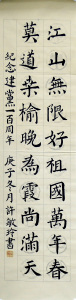 江山無限好祖國萬年春
莫道桑榆晚為霞尚滿天
紀念建黨一百周年
庚子冬月許敏玲書